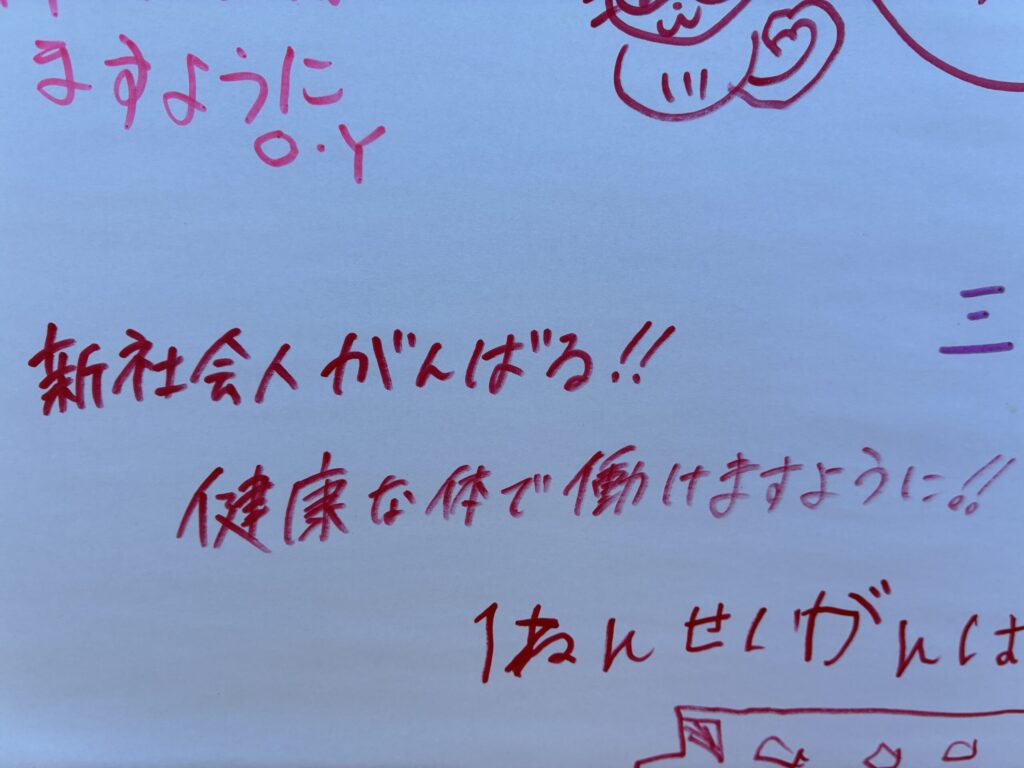 ますように
O.Y
新社会人がんばる!!
健康な体で働けますように!!
1ねんせいがんは